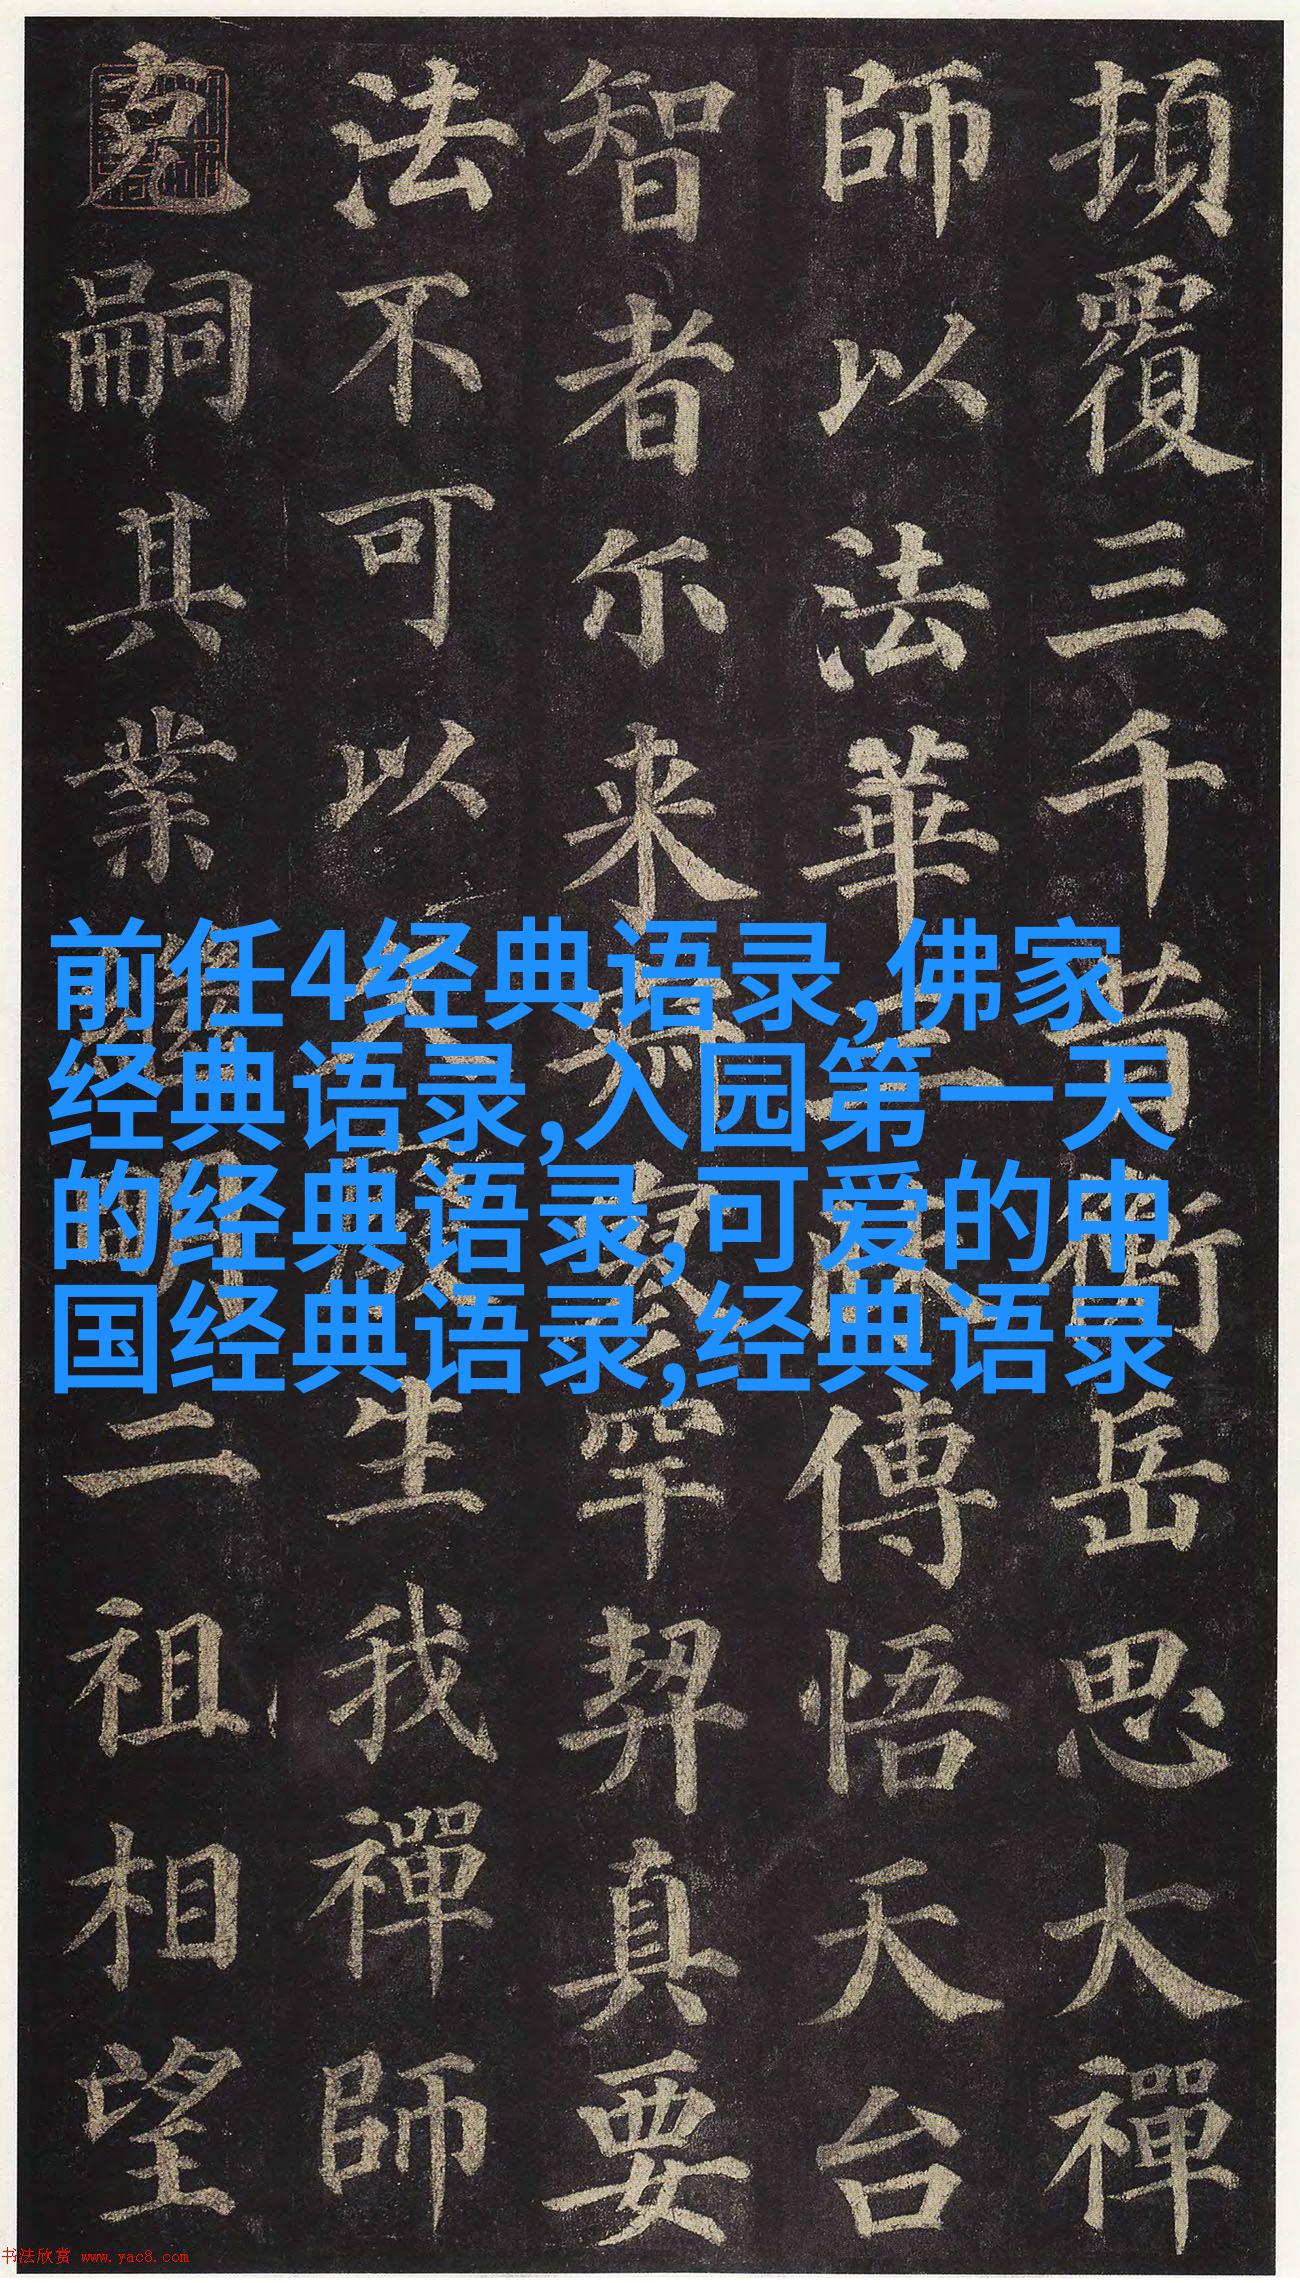 頓覆三千昔衡岳思大禪
師以法華三昧傳悟天台
智者尓来寂寥罕契真要
法不可以久廢生我禪師
克嗣其業繼明二祖相望
前任4经典语录,佛家
经典语录,入园第一天
的经典语录,可爱的中
国经典语录,经典语录
书法欣赏 www.yac8.com